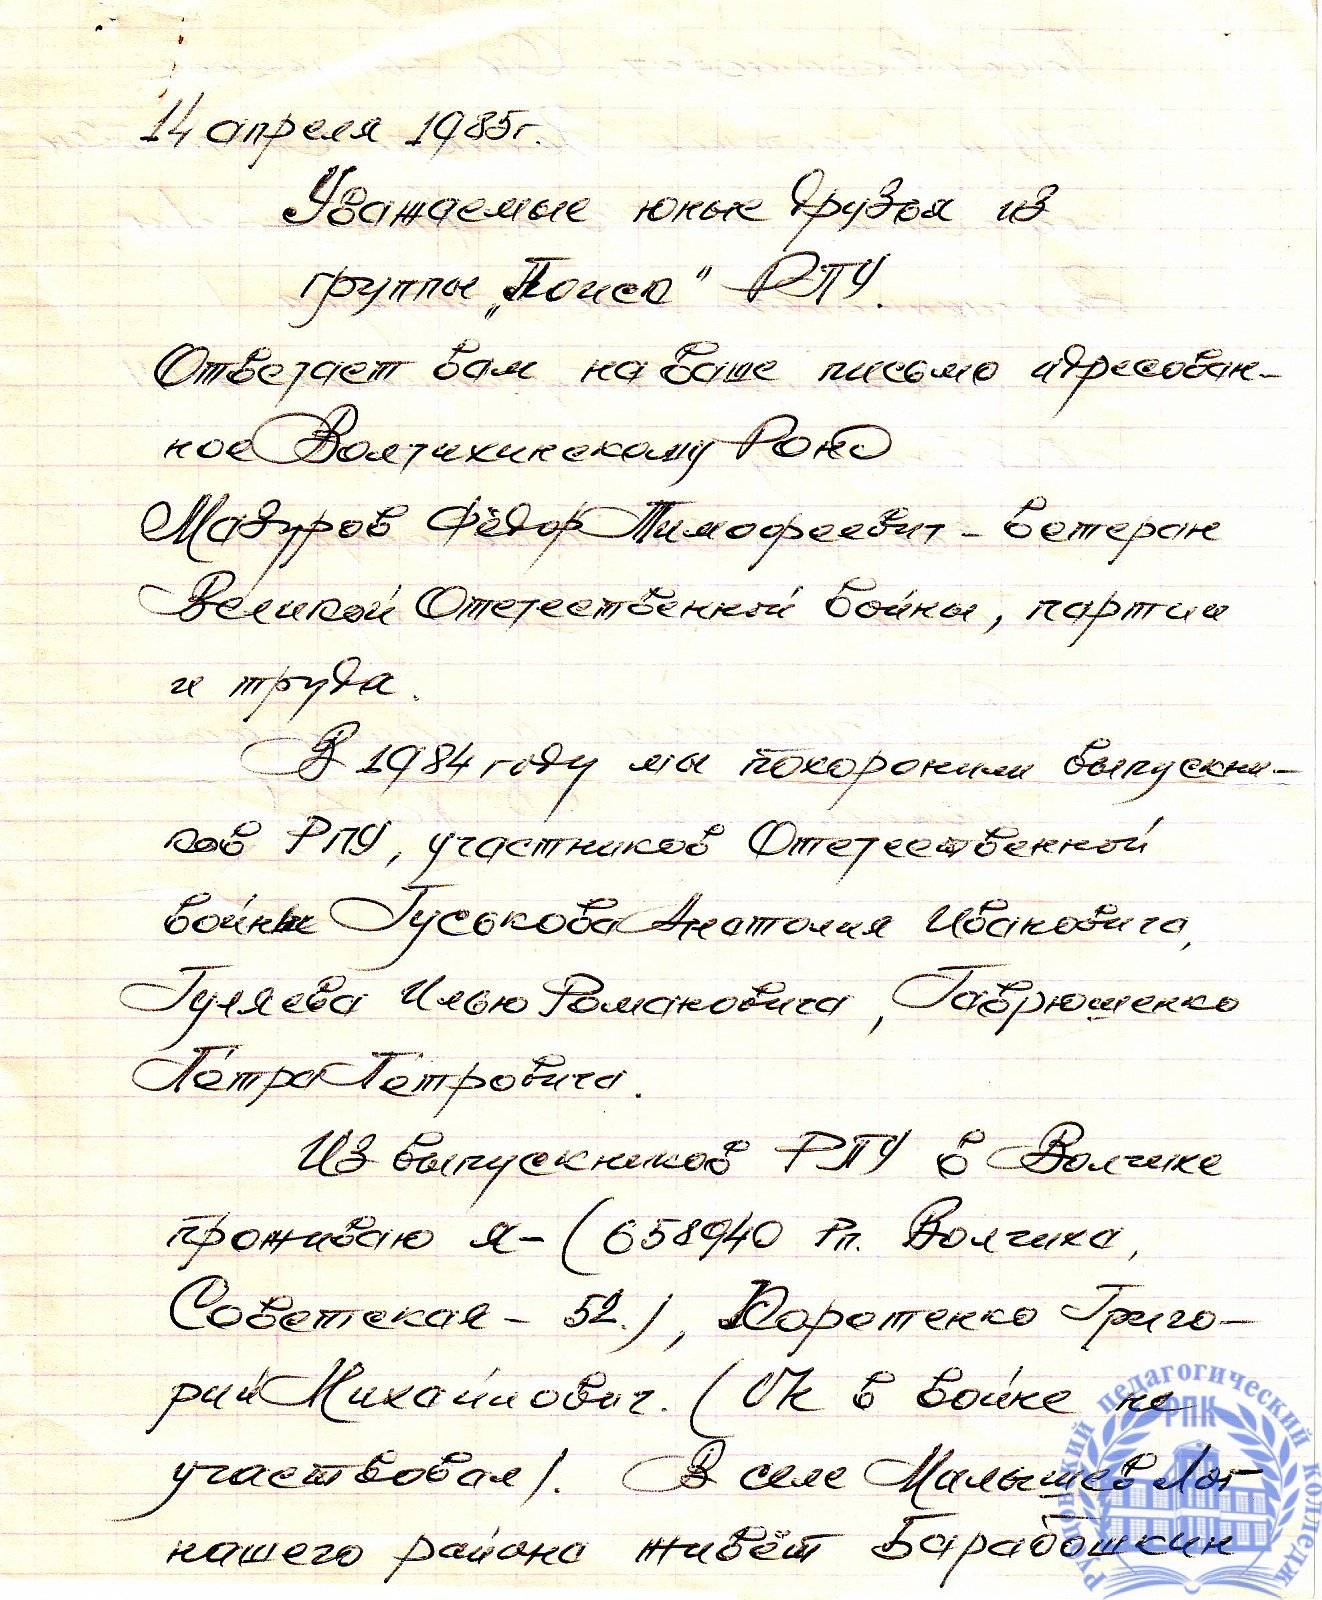 14 апреля 1985г.
Уважаемые юные друзья из
группы „Поиск" РПУ.
Отвечает вам на ваше письмо адресован-
ное Волчихинскому РОНО
Мадуров Фёдор Тимофеевич - ветеран
Великой Отечественной войны, партии
и труда.
В 1984 году мы похоронили выпускни-
ков РПУ, участников Отечественной
войны Гуськова Анатолия Ивановича,
Гуляева Илью Романовича, Гаврюшенко
Петра Петровича.
Из выпускников РПУ в Волчихе
проживаю я - (658940 Рп. Волчиха,
Советская - 52.), Коротенко Григо-
рий Михайлович. (Он в войне не
участвовал). В селе Малышев Лог
нашего района живёт Барабошкин
Рубцовский педагогический колледж
РПК